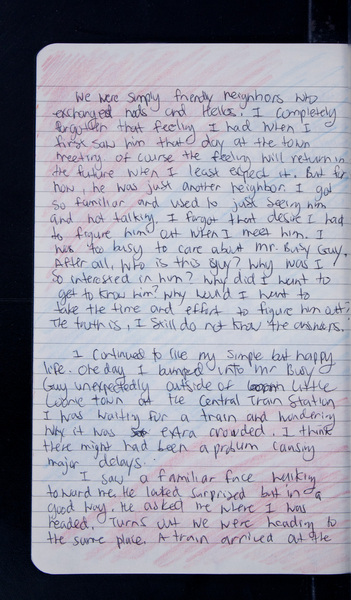 We were simply friendly neighbors who
exchanged nods and Hellos. I completely
forgotten that feeling I had when I
first saw him that day at the town
meeting. of course the feeling will return in
the future when I least expect it. But for
now, he was just another neighbor. I got
so familiar and used to just seeing him
and not talking. I forgot that desire I had
to figure him out when I meet him. I
was too busy to care about Mr. Busy Guy.
After all, who is this guy? Why was I
so interested in him? Why did I want to
get to know him? Why would I want to
take the time and effort to figure him out?
The truth is, I still do not know the answers.
I continued to live my simple but happy
life. One day I bumped into Mr Busy
Guy unexpectedly outside of Little
town at the Central Train Station
I was waiting for a train and wondering
why it was extra crowded. I think
there might had been a problem causing
major delays.
I saw a familiar face walking
toward me. He looked surprised but in a
good way. He asked me where I was
headed. Turns out we were heading to
the same place. A train arrived at the